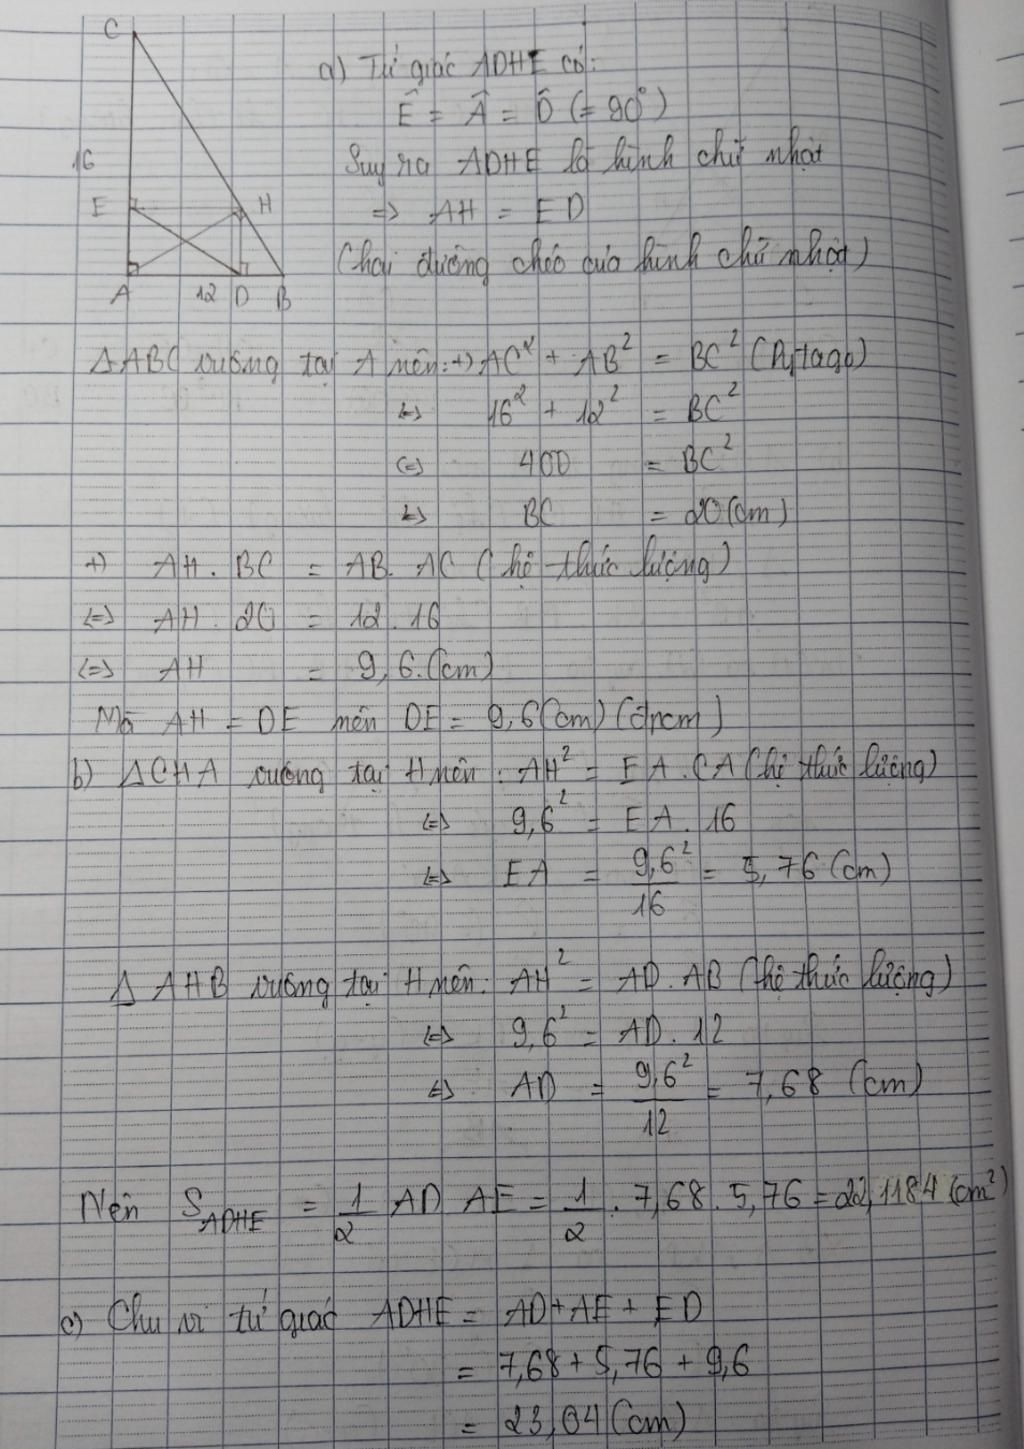 C
a) Tứ giác ADHE có:
Ê = Â = D̂ (= 90°)
16
Suy ra ADHE là hình chữ nhật
E H
=> AH = ED
(hai đường chéo của hình chữ nhật)
A 12 D B
ΔABC vuông tại A nên: +) AC² + AB² = BC² (Pytago)
<=> 16² + 12² = BC²
<=> 400 = BC²
<=> BC = 20 (cm)
+) AH . BC = AB. AC (hệ thức lượng)
<=> AH . 20 = 12 . 16
<=> AH = 9,6 (cm)
Mà AH = DE nên DE = 9,6 (cm) (đpcm)
b) ΔCHA vuông tại H nên : AH² = EA . CA (hệ thức lượng)
<=> 9,6² = EA . 16
<=> EA = 9,6²/16 = 5,76 (cm)
Δ AHB vuông tại H nên: AH² = AD . AB (hệ thức lượng)
<=> 9,6² = AD . 12
<=> AD = 9,6²/12 = 7,68 (cm)
Nên S_ADHE = 1/2 AD AE = 1/2 . 7,68 . 5,76 = 22,1184 (cm²)
c) Chu vi tứ giác ADHE = AD + AE + ED
= 7,68 + 5,76 + 9,6
= 23,04 (cm)